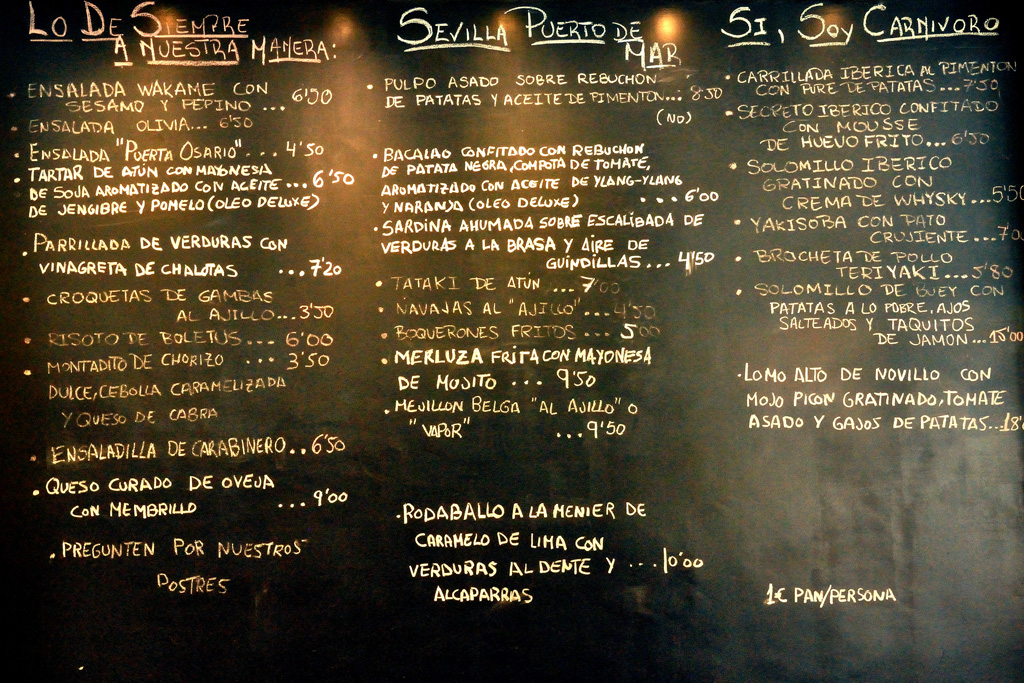 LO DE SIEMPRE
A NUESTRA MANERA:
· ENSALADA WAKAME CON
SESAMO Y PEPINO ... 6'50
· ENSALADA OLIVIA... 6'50
· ENSALADA "PUERTA OSARIO"... 4'50
· TARTAR DE ATÚN CON MAYONESA
DE SOJA AROMATIZADO CON ACEITE ... 6'50
DE JENGIBRE Y POMELO (OLEO DELUXE)
· PARRILLADA DE VERDURAS CON
VINAGRETA DE CHALOTAS ...7'20
· CROQUETAS DE GAMBAS
AL AJILLO...3'50
· RISOTO DE BOLETUS ... 6'00
· MONTADITO DE CHORIZO ... 3'50
DULCE, CEBOLLA CARAMELIZADA
Y QUESO DE CABRA
· ENSALADILLA DE CARABINERO... 6'50
· QUESO CURADO DE OVEJA
CON MEMBRILLO ... 9'00
· PREGUNTEN POR NUESTROS
POSTRES
SEVILLA PUERTO DE
MAR
· PULPO ASADO SOBRE REBUCHON
DE PATATAS Y ACEITE DE PIMENTON... 8'50
(NO)
· BACALAO CONFITADO CON REBUCHON
DE PATATA NEGRA, COMPOTA DE TOMATE,
AROMATIZADO CON ACEITE DE YLANG-YLANG
Y NARANJA (OLEO DELUXE) ... 6'00
· SARDINA AHUMADA SOBRE ESCALIBADA DE
VERDURAS A LA BRASA Y AIRE DE
GUINDILLAS ... 4'50
· TATAKI DE ATÚN ... 7'00
· NAVAJAS AL "AJILLO" ... 4'50
· BOQUERONES FRITOS ... 5'00
· MERLUZA FRITA CON MAYONESA
DE MOJITO ... 9'50
· MEJILLON BELGA "AL AJILLO" O
"VAPOR" ... 9'50
· RODABALLO A LA MENIER DE
CARAMELO DE LIMA CON
VERDURAS AL DENTE Y ... 10'00
ALCAPARRAS
SI, SOY CARNIVORO
· CARRILLADA IBERICA AL PIMENTON
CON PURE DE PATATAS... 7'50
· SECRETO IBERICO CONFITADO
CON MOUSSE
DE HUEVO FRITO... 6'50
· SOLOMILLO IBERICO
GRATINADO CON
CREMA DE WHYSKY...5'50
· YAKISOBA CON PATO
CRUJIENTE...7'00
· BROCHETA DE POLLO
TERIYAKI...5'80
· SOLOMILLO DE BUEY CON
PATATAS A LO POBRE, AJOS
SALTEADOS Y TAQUITOS
DE JAMON...15'00
· LOMO ALTO DE NOVILLO CON
MOJO PICON GRATINADO, TOMATE
ASADO Y GAJOS DE PATATAS...18'
1€ PAN/PERSONA